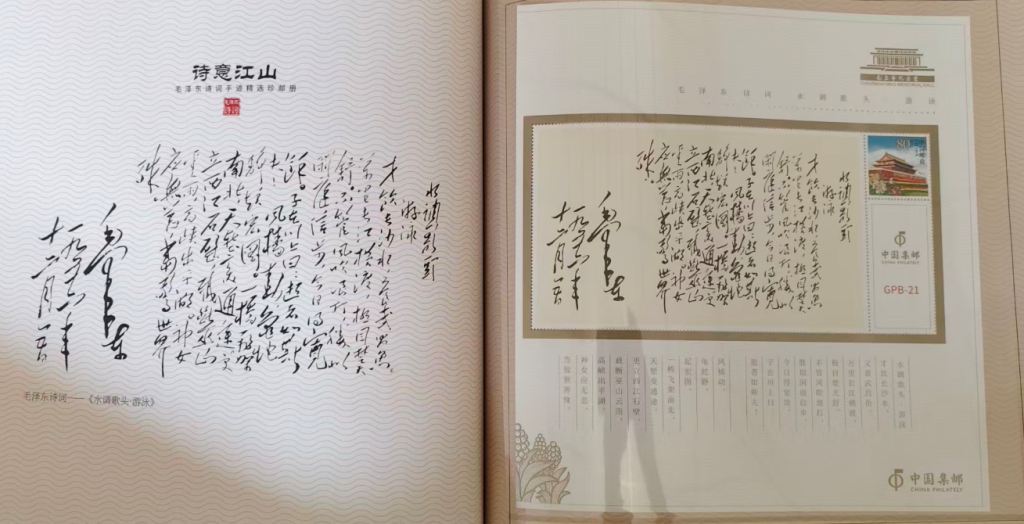 诗意江山
毛泽东诗词手迹精选珍邮册
水调歌头
游泳
才饮长沙水又食武昌鱼
万里长江横渡极目楚天
舒不管风吹浪打胜似
闲庭信步今日得宽
馀子在川上曰逝者如斯
夫风樯动龟蛇
静起宏图一桥飞架
南北天堑变通途更
立西江石壁截断巫山
云雨高峡出平湖神女
应无恙当惊世界
殊
毛泽东
一九五六年
十二月五日
毛泽东诗词——《水调歌头·游泳》
毛泽东诗词 水调歌头·游泳
水调歌头
游泳
才饮长沙水又食武昌鱼
万里长江横渡极目楚天
舒不管风吹浪打胜似
闲庭信步今日得宽
馀子在川上曰逝者如斯
夫风樯动龟蛇
静起宏图一桥飞架
南北天堑变通途更
立西江石壁截断巫山
云雨高峡出平湖神女
应无恙当惊世界
殊
毛泽东
一九五六年
十二月五日
80
中国邮政
中国集邮
CHINA PHILATELY
GPB-21
水调歌头·游泳
才饮长沙水,
又食武昌鱼。
万里长江横渡,
极目楚天舒。
不管风吹浪打,
胜似闲庭信步,
今日得宽馀。
子在川上曰:
逝者如斯夫!
风樯动,
龟蛇静,
起宏图。
一桥飞架南北,
天堑变通途。
更立西江石壁,
截断巫山云雨,
高峡出平湖。
神女应无恙,
当惊世界殊。
中国集邮
CHINA PHILATELY